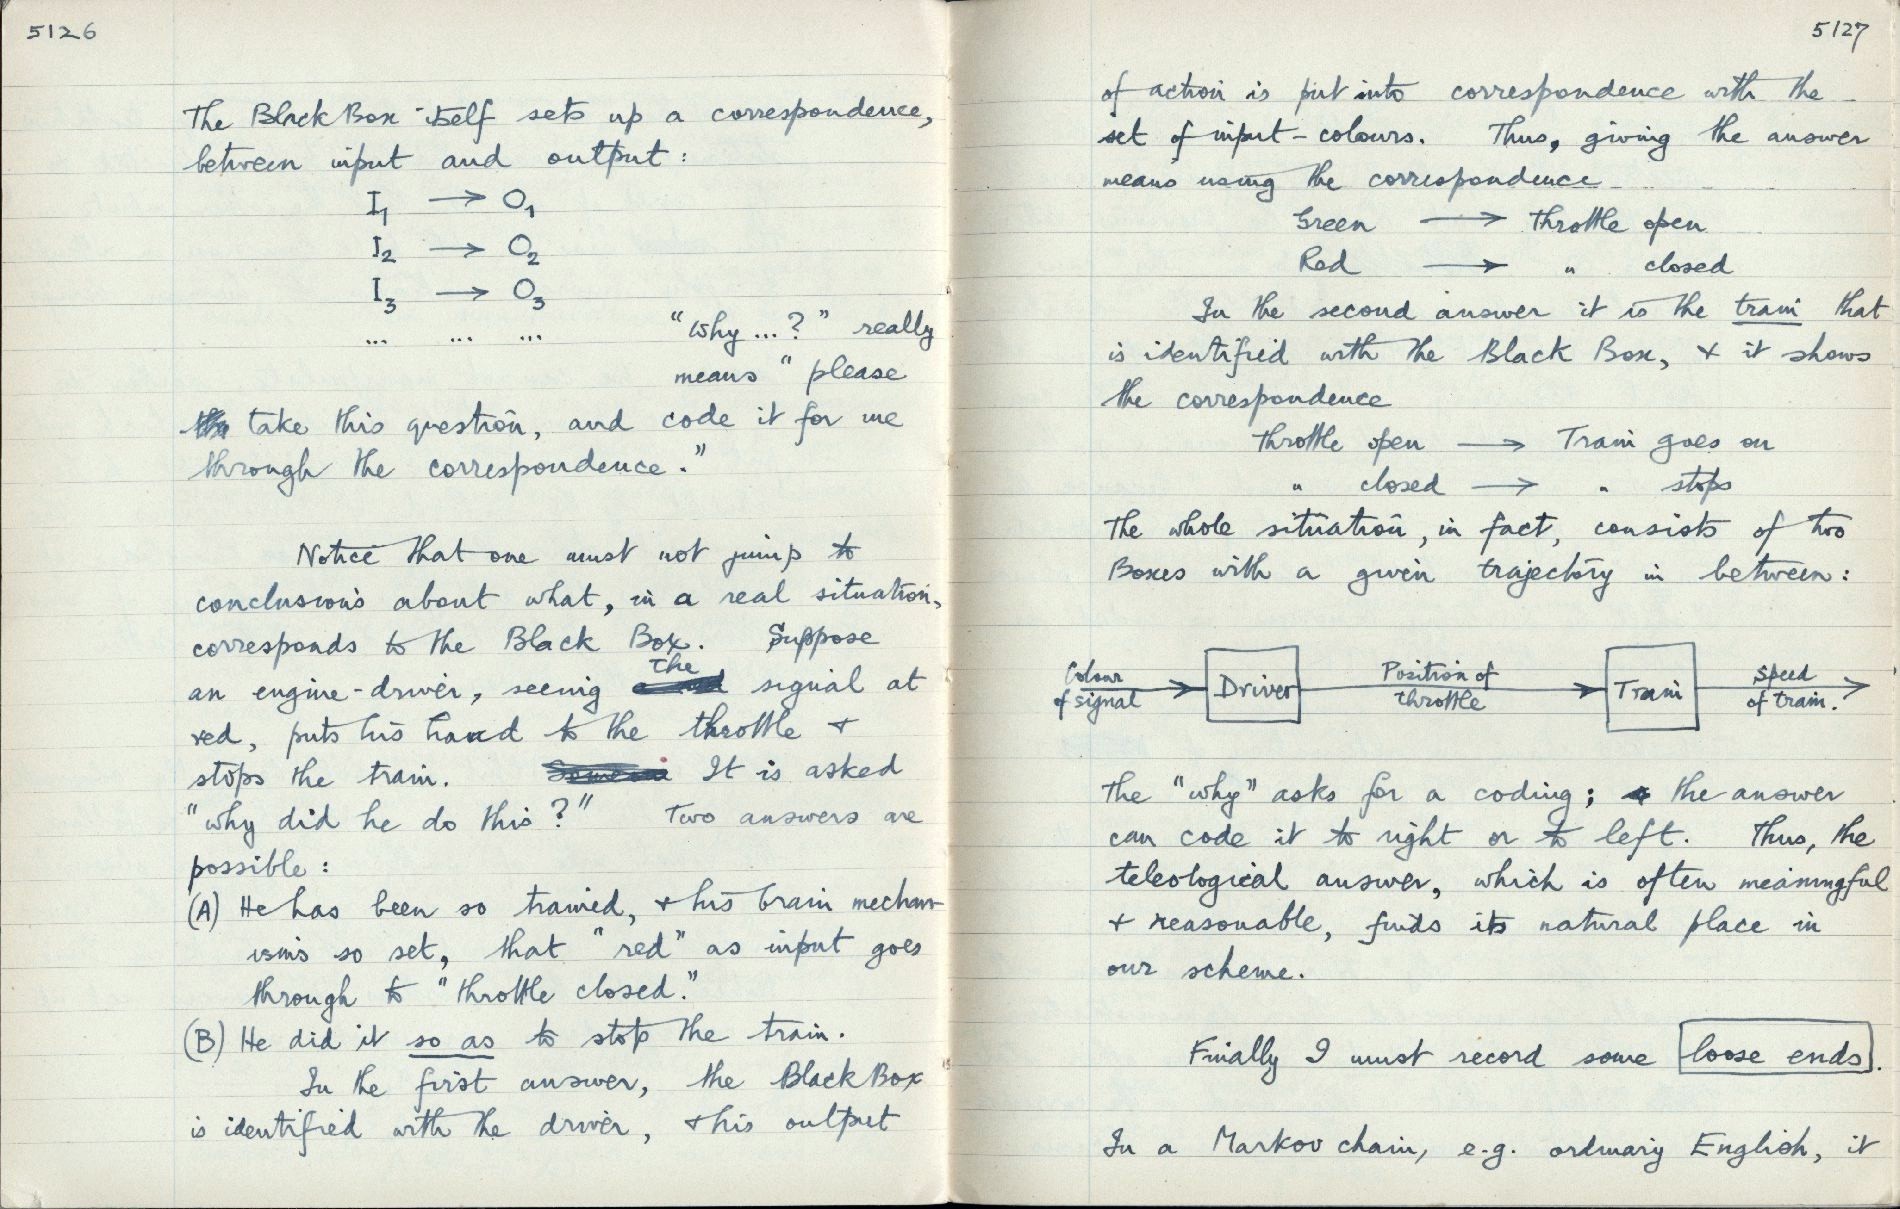 5126
The Black Box itself sets up a correspondence,
between input and output:
I1 → O1
I2 → O2
I3 → O3
... ... ...
"why ...?" really
means "please
take this question, and code it for me
through the correspondence."
Notice that one must not jump to
conclusions about what, in a real situation,
corresponds to the Black Box. Suppose
an engine-driver, seeing the signal at
red, puts his hand to the throttle +
stops the train. It is asked
"why did he do this?" Two answers are
possible:
(A) He has been so trained, + his brain mechan-
isms so set, that "red" as input goes
through to "throttle closed."
(B) He did it so as to stop the train.
In the first answer, the Black Box
is identified with the driver, + his output
5127
of action is put into correspondence with the
set of input-colours. Thus, giving the answer
means using the correspondence
Green → Throttle open
Red → " closed
In the second answer it is the train that
is identified with the Black Box, + it shows
the correspondence
Throttle open → Train goes on
" closed → " stops
The whole situation, in fact, consists of two
Boxes with a given trajectory in between:
Colour
of signal
Driver
Position of
throttle
Train
Speed
of train.
The "why" asks for a coding; the answer
can code it to right or to left. Thus, the
teleological answer, which is often meaningful
+ reasonable, finds its natural place in
our scheme.
Finally I must record some loose ends.
In a Markov chain, e.g. ordinary English, it